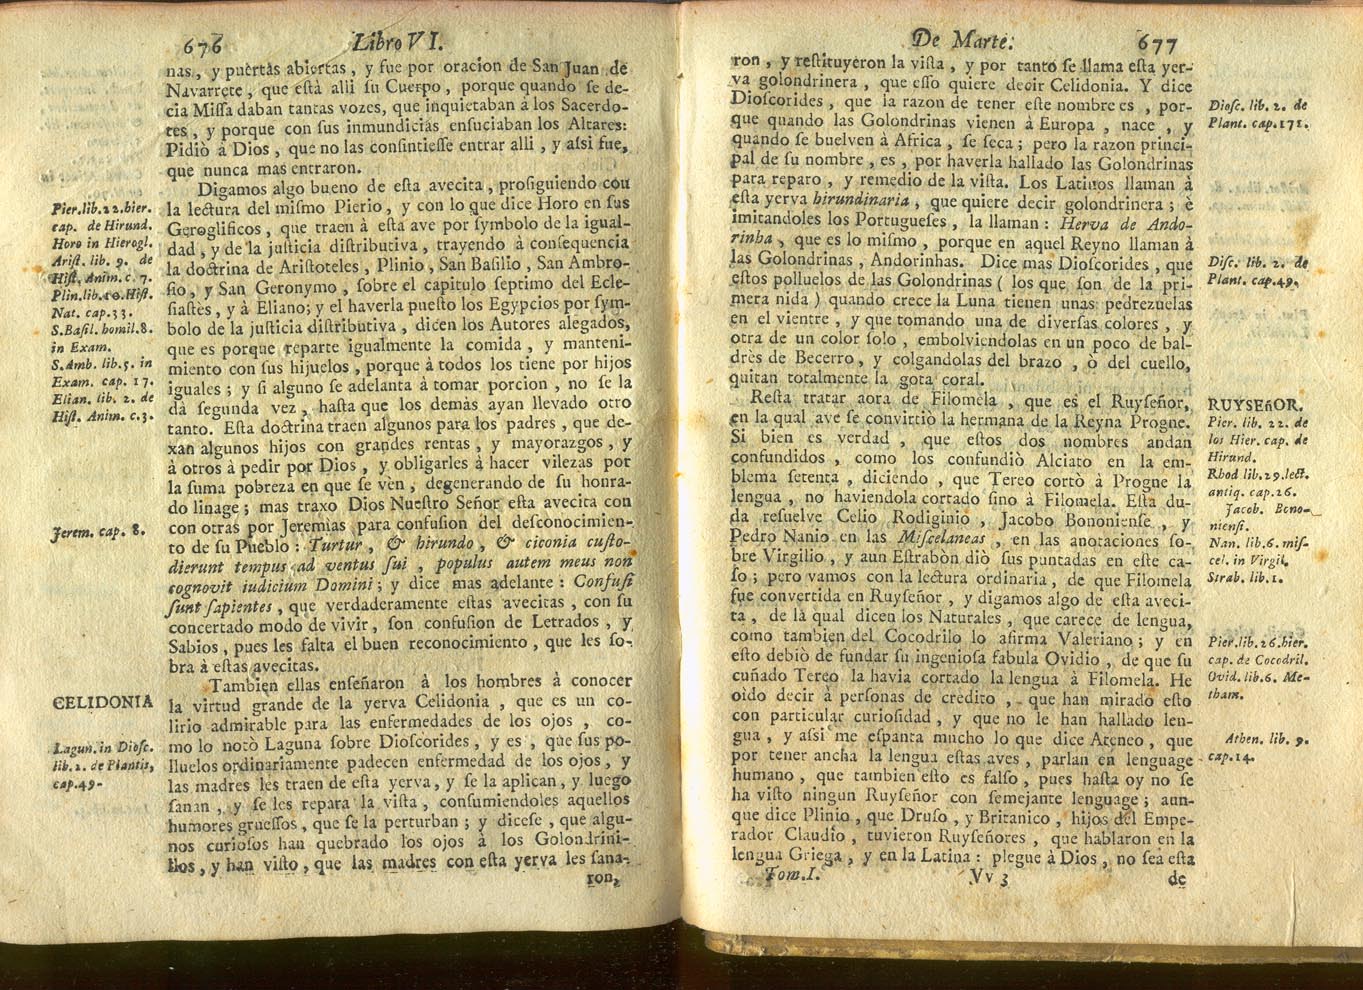 676 Libro VI.
nas, y puertas abiertas, y fue por oracion de San Juan de
Navarrete, que eſtà alli ſu Cuerpo, porque quando ſe de-
cia Miſſa daban tantas vozes, que inquietaban à los Sacerdo-
tes, y porque con ſus inmundicias enſuciaban los Altares:
Pidiò à Dios, que no las conſintieſſe entrar alli, y aſsi fue,
que nunca mas entraron.
Digamos algo bueno de eſta avecita, proſiguiendo con
la lectura del miſmo Pierio, y con lo que dice Horo en ſus
Geroglificos, que traen à eſta ave por ſymbolo de la igual-
dad, y de la juſticia diſtributiva, trayendo à conſequencia
la doctrina de Ariſtoteles, Plinio, San Baſilio, San Ambro-
ſio, y San Geronymo, ſobre el capitulo ſeptimo del Ecle-
ſiaſtes, y à Eliano; y el haverla pueſto los Egypcios por ſym-
bolo de la juſticia diſtributiva, dicen los Autores alegados,
que es porque reparte igualmente la comida, y manteni-
miento con ſus hijuelos, porque à todos los tiene por hijos
iguales; y ſi alguno ſe adelanta à tomar porcion, no ſe la
dà ſegunda vez, haſta que los demàs ayan llevado otro
tanto. Eſta doctrina traen algunos para los padres, que de-
xan algunos hijos con grandes rentas, y mayorazgos, y
à otros à pedir por Dios, y obligarles à hacer vilezas por
la ſuma pobreza en que ſe vèn, degenerando de ſu honra-
do linage; mas traxo Dios Nueſtro Señor eſta avecita con
con otras por Jeremias para confuſion del deſconocimien-
to de ſu Pueblo: Turtur, & hirundo, & ciconia cuſto-
dierunt tempus ad ventus ſui, populus autem meus non
cognovit iudicium Domini; y dice mas adelante: Confuſi
ſunt ſapientes, que verdaderamente eſtas avecitas, con ſu
concertado modo de vivir, ſon confuſion de Letrados, y
Sabios, pues les falta el buen reconocimiento, que les ſo-
bra à eſtas avecitas.
Tambien ellas enſeñaron à los hombres à conocer
la virtud grande de la yerva Celidonia, que es un co-
lirio admirable para las enfermedades de los ojos, co-
mo lo notò Laguna ſobre Dioſcorides, y es, que ſus po-
lluelos ordinariamente padecen enfermedad de los ojos, y
las madres les traen de eſta yerva, y ſe la aplican, y luego
ſanan, y ſe les repara la viſta, conſumiendoles aquellos
humores grueſſos, que ſe la perturban; y diceſe, que algu-
nos curioſos han quebrado los ojos à los Golondrini-
llos, y han viſto, que las madres con eſta yerva les ſana-
ron,
Pier.lib.22.hier.
cap. de Hirund.
Horo in Hierogl.
Ariſt. lib. 9. de
Hiſt. Anim. c. 7.
Plin.lib.10.Hiſt.
Nat. cap.33.
S.Baſil. homil.8.
in Exam.
S.Amb. lib.5. in
Exam. cap. 17.
Elian. lib. 2. de
Hiſt. Anim. c.3.
Jerem. cap. 8.
CELIDONIA
Lagun. in Dioſc.
lib.2. de Plantis,
cap.49.
De Marte. 677
ron, y reſtituyeron la viſta, y por tanto ſe llama eſta yer-
va golondrinera, que eſſo quiere decir Celidonia. Y dice
Dioſcorides, que la razon de tener eſte nombre es, por-
que quando las Golondrinas vienen à Europa, nace, y
quando ſe buelven à Africa, ſe ſeca; pero la razon princi-
pal de ſu nombre, es, por haverla hallado las Golondrinas
para reparo, y remedio de la viſta. Los Latinos llaman à
eſta yerva hirundinaria, que quiere decir golondrinera; è
imitandoles los Portugueſes, la llaman: Herva de Ando-
rinha, que es lo miſmo, porque en aquel Reyno llaman à
las Golondrinas, Andorinhas. Dice mas Dioſcorides, que
eſtos polluelos de las Golondrinas (los que ſon de la pri-
mera nida) quando crece la Luna tienen unas pedrezuelas
en el vientre, y que tomando una de diverſas colores, y
otra de un color ſolo, embolviendolas en un poco de bal-
drès de Becerro, y colgandolas del brazo, ò del cuello,
quitan totalmente la gota coral.
Reſta tratar aora de Filomela, que es el Ruyſeñor,
en la qual ave ſe convirtiò la hermana de la Reyna Progne.
Si bien es verdad, que eſtos dos nombres andan
confundidos, como los confundiò Alciato en la em-
blema ſetenta, diciendo, que Tereo cortò à Progne la
lengua, no haviendola cortado ſino à Filomela. Eſta du-
da reſuelve Celio Rodiginio, Jacobo Bononienſe, y
Pedro Nanio en las Miſcelaneas, en las anotaciones ſo-
bre Virgilio, y aun Eſtrabòn diò ſus puntadas en eſte ca-
ſo; pero vamos con la lectura ordinaria, de que Filomela
fue convertida en Ruyſeñor, y digamos algo de eſta aveci-
ta, de la qual dicen los Naturales, que carece de lengua,
como tambien del Cocodrilo lo afirma Valeriano; y en
eſto debiò de fundar ſu ingenioſa fabula Ovidio, de que ſu
cuñado Tereo la havia cortado la lengua à Filomela. He
oìdo decir à perſonas de credito, que han mirado eſto
con particular curioſidad, y que no le han hallado len-
gua, y aſsi me eſpanta mucho lo que dice Ateneo, que
por tener ancha la lengua eſtas aves, parlan en lenguage
humano, que tambien eſto es falſo, pues haſta oy no ſe
ha viſto ningun Ruyſeñor con ſemejante lenguage; aun-
que dice Plinio, que Druſo, y Britanico, hijos del Empe-
rador Claudio, tuvieron Ruyſeñores, que hablaron en la
lengua Griega, y en la Latina: plegue à Dios, no ſea eſta
Tom.I. Vv 3 de
Dioſc. lib. 2. de
Plant. cap.171.
Diſc. lib. 2. de
Plant. cap.49.
RUYSEñOR.
Pier. lib. 22. de
los Hier. cap. de
Hirund.
Rhod lib.29.lect.
antiq. cap.26.
Jacob. Bono-
nienſi.
Nan. lib.6. miſ-
cel. in Virgil.
Strab. lib.1.
Pier.lib.26.hier.
cap. de Cocodril.
Ovid. lib.6. Me-
tham.
Athen. lib. 9.
cap.14.